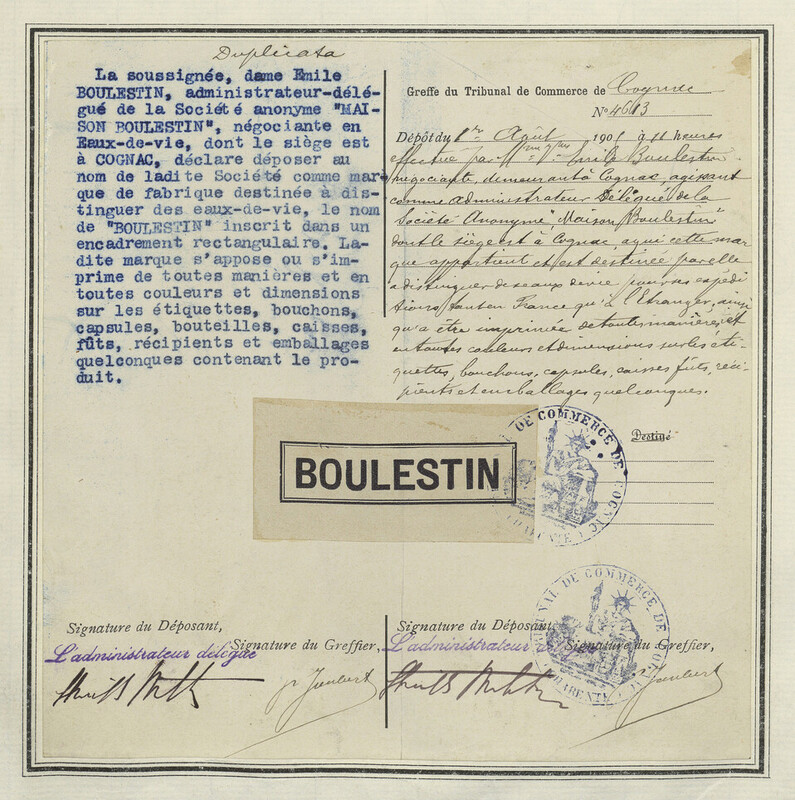 Duplicata
La soussignée, dame Emile
BOULESTIN, administrateur-délé-
gué de la Société anonyme "MAI-
SON BOULESTIN", négociante en
Eaux-de-vie, dont le siège est
à COGNAC, déclare déposer au
nom de ladite Société comme mar-
que de fabrique destinée à dis-
tinguer des eaux-de-vie, le nom
de "BOULESTIN" inscrit dans un
encadrement rectangulaire. La-
dite marque s'appose ou s'im-
prime de toutes manières et en
toutes couleurs et dimensions
sur les étiquettes, bouchons,
capsules, bouteilles, caisses,
fûts, récipients et emballages
quelconques contenant le pro-
duit.
Greffe du Tribunal de Commerce de Cognac
No 4613
Dépôt du 1er Août 1901 à 11 heures
effectué par Emile Boulestin
négociante, demeurant à Cognac, agissant
comme administrateur Délégué de la
Société Anonyme "Maison Boulestin"
dont le siège est à Cognac, a qui cette mar
que appartient et est destinée par elle
à distinguer des eaux de vie pour ses expédi
tions tant en France qu'à l'Etranger, ainsi
qu'a être imprimée de toutes manières, et
en toutes couleurs et dimensions sur les éti-
quettes, bouchons, capsules, caisses fûts, réci-
pients et emballages quelconques.
Destiné
BOULESTIN
DE COMMERCE DE COGNAC
CHARENTE
Signature du Déposant,
Signature du Greffier,
L'administrateur délégué
Joubert
Signature du Déposant,
Signature du Greffier,
L'administrateur
Joubert
TRIBUNAL DE COMMERCE DE
CHARENTE